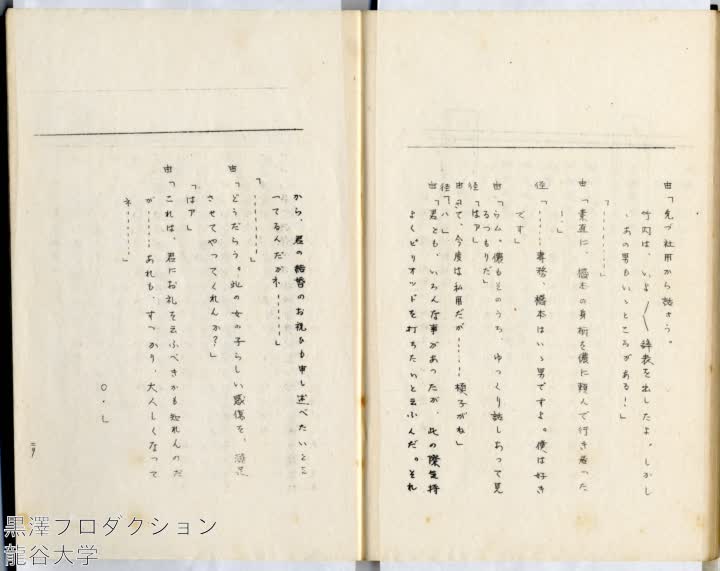 由「先づ社用から話さう。
竹内は、いよ〱辞表を出したよ。しかし
、あの男もいゝところがある！」
「…………」
由「素直に、橋本の身柄を僕に頼んで行き居つた
…」
径「……専務、橋本はいゝ男ですよ。僕は好き
です」
由「ウム。僕もそのうち、ゆつくり話しあつて見
るつもりだ」
径「はア」
由「さて、今度は私用だが……槇子がね」
径「ハ」
由「君とも、いろんな事があつたが、此の際気持
よくピリオッドを打ちたいと云ふんだ。それ
から、君の結婚のお祝ひも申し述べたいと云
つてるんだがネ……」
「…………」
由「どうだらう。此の女の子らしい感傷を、満足
させてやつてくれんか？」
「はア」
由「これは、君にお礼を云ふべきかも知れんのだ
が……あれも、すつかり、大人しくなつて
ネ……」
○・L
黒澤プロダクション
龍谷大学